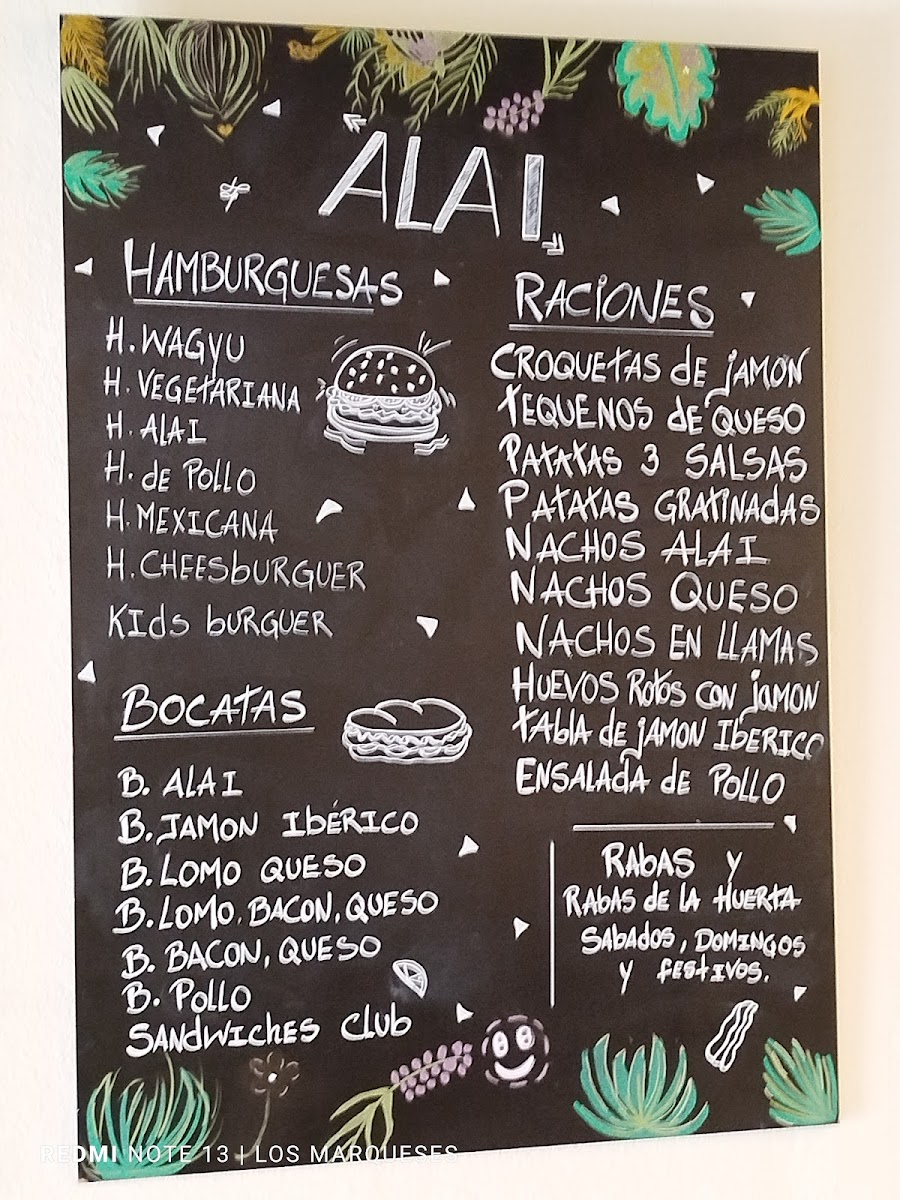 ALAI
HAMBURGUESAS
H. WAGYU
H. VEGETARIANA
H. ALAI
H. de Pollo
H. MEXICANA
H. CHEESbURGUER
KIds bURGUER
BOCATAS
B. ALAI
B. JAMON IbÉRICO
B. LOMO QUESO
B. LOMO, BACON, QUESO
B. BACON, QUESO
B. POLLO
SANDWICHES Club
RACiONES
CROQUETAS dE jAMÓN
TEQUENOS de QUESO
PATATAS 3 SALSAS
PATATAS GRATINAdAS
NACHOS ALAI
NACHOS QUESO
NACHOS EN LLAMAS
HUEVOS Rotos con jamon
tAblA de jAMON IbERICO
ENSALAdA de POLLO
RAbAS y
RAbAS de lA HUERTA
SAbADOS, DOMINGOS
y fESTIVOS.
REDMI NOTE 13 | LOS MARQUESES